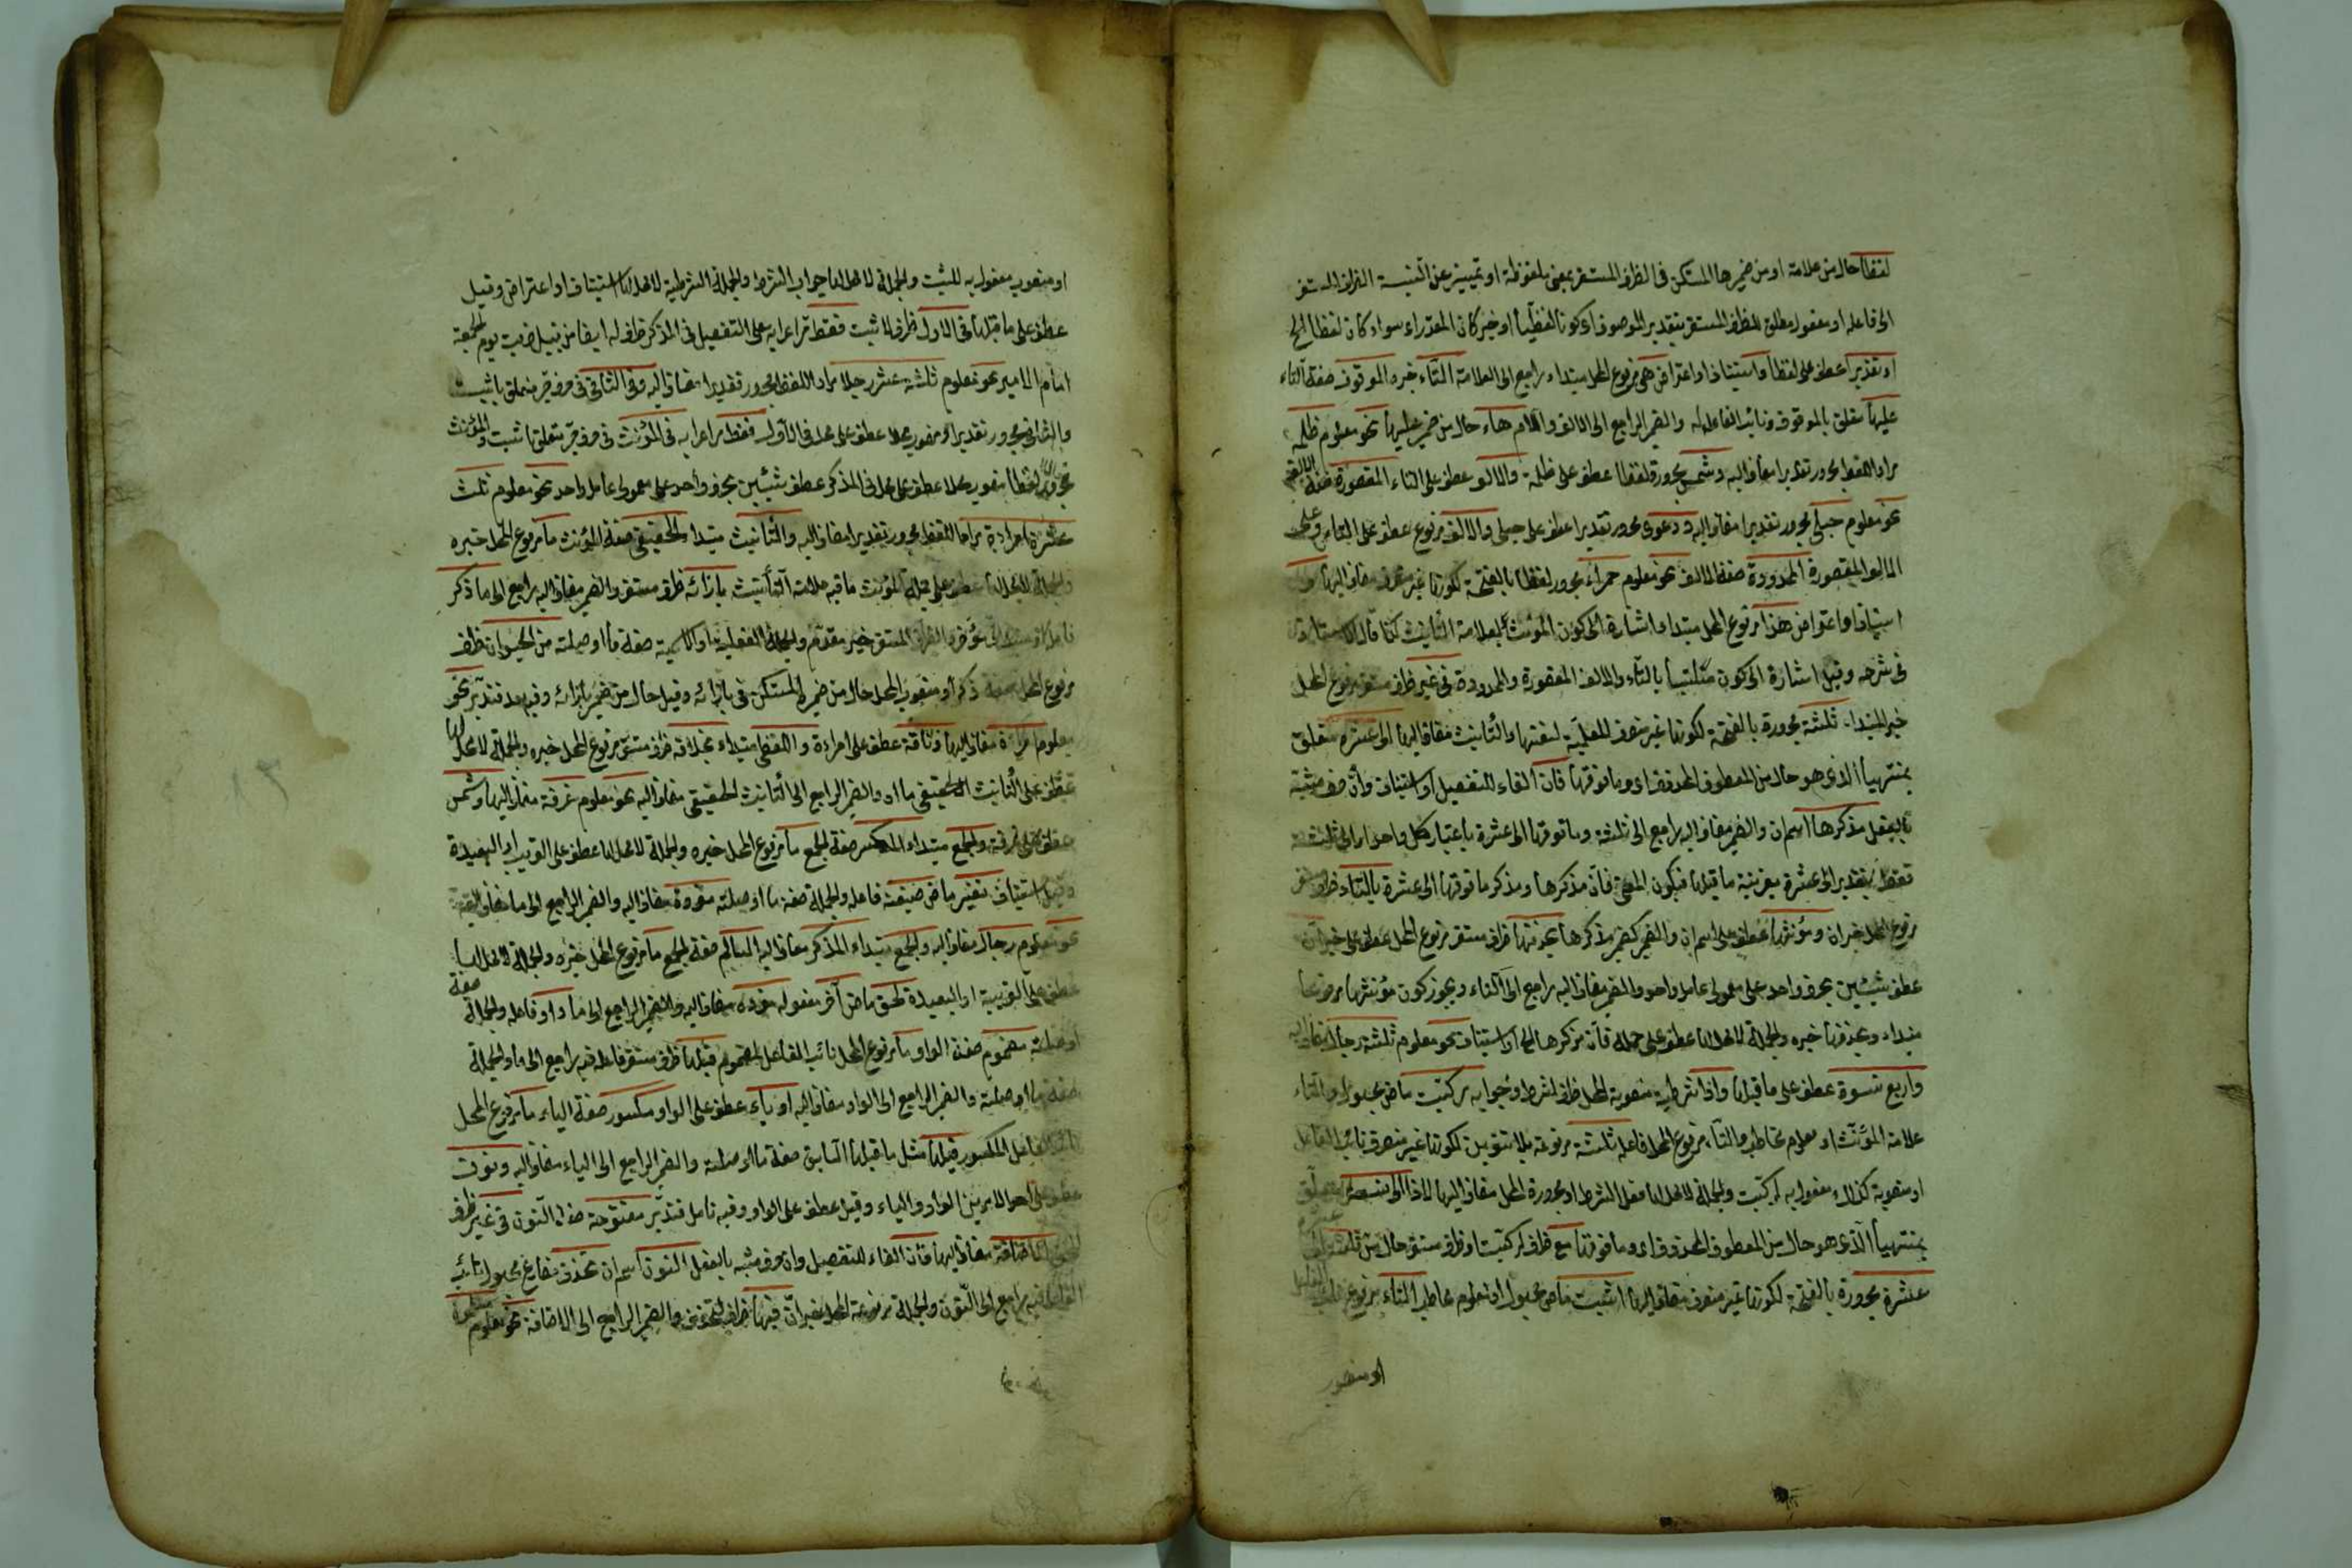 لفظا حال من علامة او من ضميرها المستكن فى الظرف المستقر بمعنى ملفوظة او تمييز عن النسبة الظرف المستقر
الى فاعله او مفعول مطلق للظرف المستقر بتقدير الموصوف اى كونا لفظيا او خبر كان المقدر اى سواء كان لفظا الخ
او تقديرا عطف على لفظا او استيناف او اعتراض هى مرفوع المحل مبتداء راجع الى العلامة التاء خبره الموقوف صفة التاء
عليها متعلق بالموقوف ونائب الفاعل له والضمير الراجع الى الالف واللام هاء حال من ضمير عليها نحو معلوم ظلمة
مراد اللفظ مجرور تقديرا مضاف اليه وشمس مجرورة لفظا عطف على ظلمة والالف عطف على التاء المقصورة صفة الالف
نحو معلوم حبلى مجرور تقديرا مضاف اليه ودعوى مجرور تقديرا عطف على حبلى والالف مرفوع عطف على التاء وعلى
الالف المقصورة الممدودة صفة الالف نحو معلوم حمراء مجرور لفظا بالفتحة لكونها غير منصرف مضاف اليها
استيناف او اعتراض هذا مرفوع المحل مبتداء اشارة الى كون المؤنث بعلامة التأنيث كذا قال الاستاد
فى شرحه وقيل اشارة الى كون متلبسا بالتاء والالف المقصورة والممدودة فى غير ظرف مستقر مرفوع المحل
خبر المبتداء ثلثة مجرورة بالفتحة لكونها غير منصرف للعلمية والتأنيث مضاف اليها الى عشرة متعلق
بمنتهيا الذى هو حال من المعطوف المحذوف اى وما فوقها فان الفاء للتفصيل او استيناف وان حرف مشبه
بالفعل مذكرها اسم ان والضمير مضاف اليه راجع الى ثلثة وما فوقها الى عشرة باعتبار كل واحد او الى ثلثة
فقط بتقدير الى عشرة بقرينة ما قبلها فيكون المعنى فان مذكرها ومذكر ما فوقها الى عشرة بالتاء ظرف مستقر
مرفوع المحل خبر ان ومؤنثها عطف على اسم ان والضمير كضمير مذكرها بحذفها ظرف مستقر مرفوع المحل عطف على خبر ان
عطف شيئين بحرف واحد على معمولى عامل واحد والضمير مضاف اليه راجع الى التاء ويجوز كون مؤنثها مرفوعا
مبتداء وبحذفها خبره والجملة لا محل لها عطف على جملة فان مذكرها الخ او استيناف نحو معلوم ثلثة رجال مضاف اليه
واربع نسوة عطف على ما قبلها واذا شرطية منصوبة المحل ظرف لشرط او جوابه ركبت ماض مجهول والتاء
علامة المؤنث او معلوم مخاطب والتاء مرفوع المحل فاعله ثلثة مرفوعة بلا تنوين لكونها غير منصرف نائب الفاعل
او منصوبة كذلك مفعول به لركبت والجملة لا محل لها فعل الشرط او مجرورة المحل مضاف اليها لاذا الى تسعة متعلق
بمنتهيا الذى هو حال من المعطوف المحذوف اى وما فوقها مع ظرف لركبت او ظرف مستقر حال من ثلثة
عشرة مجرورة بالفتحة لكونها غير منصرف مضاف اليها اثبت ماض مجهول او معلوم مخاطب التاء مرفوع نائب الفاعل
او منصوب
او منصوب مفعول به للثبت والجملة لا محل لها جواب الشرط والجملة الشرطية لا محل لها استيناف او اعتراض وقيل
عطف على ما قبلها فى الاول ظرف لاثبت فقط مر اعرابه على التفصيل فى المذكر ظرف له ايضا من قبيل ضربت يوم الجمعة
امام الامير نحو معلوم ثلثة عشر رجلا مراد اللفظ مجرور تقديرا مضاف اليه وفى الثانى فى حرف جر متعلق باثبت
والثانى مجرور تقديرا ومنصوب محلا عطف على محل فى الاول فقط مر اعرابه فى المؤنث فى حرف جر متعلق باثبت والمؤنث
مجرور لفظا منصوب محلا عطف على محل فى المذكر عطف شيئين بحرف واحد على معمولى عامل واحد نحو معلوم ثلث
عشرة امراءة مراد اللفظ مجرور تقديرا مضاف اليه والتأنيث مبتداء الحقيقى صفة المؤنث ما مرفوع المحل خبره
والجملة لا محل لها عطف على جملة المؤنث ما فيه علامة التأنيث بازائه ظرف مستقر والضمير مضاف اليه راجع الى ما ذكر
فاعله او مبتداء مؤخر والظرف المستقر خبر مقدم والجملة الفعلية او الاسمية صفة ما او صلته من الحيوان ظرف
مرفوع المحل صفة ذكر او منصوب المحل حال من ضميره المستكن فى بازائه وقيل حال من ضمير بازائه وفيه بعد فتدبر نحو
معلوم امراءة مضاف اليها وناقة عطف على امراءة واللفظى مبتداء بخلافه ظرف مستقر مرفوع المحل خبره والجملة لا محل لها
عطف على التأنيث الحقيقى ما اه والضمير الراجع الى التأنيث الحقيقى مضاف اليه نحو معلوم غرفة مضاف اليها وشمس
عطف على غرفة والجمع مبتداء المكسر صفة الجمع ما مرفوع المحل خبره والجملة لا محل لها عطف على القريب او البعيدة
وقيل استيناف تغير ماض صيغة فاعله والجملة صفة ما او صلته مفردة مضاف اليه والضمير الراجع الى ما مضاف اليه
نحو معلوم رجال مضاف اليه والجمع مبتداء المذكر مضاف اليه السالم صفة الجمع ما مرفوع المحل خبره والجملة لا محل لها
عطف على القريبة او البعيدة لحق ماض آخر مفعوله مفرده مضاف اليه والضمير الراجع الى ما واو فاعله والجملة صفة
او صلته مضموم صفة الواو ما مرفوع المحل نائب الفاعل لمضموم قبلها ظرف مستقر فاعله فيه راجع الى ما والجملة
صفة ما او صلته والضمير الراجع الى الواو مضاف اليه او ياء عطف على الواو مكسور صفة الياء ما مرفوع المحل
نائب الفاعل لمكسور قبلها مثل ما قبلها السابق صفة ما او صلته والضمير الراجع الى الياء مضاف اليه ونون
عطف على احد الامرين الواو والياء وقيل عطف على الواو وفيه تأمل فتدبر مفتوحة صفة النون فى غير ظرف
لحق الاضافة مضاف اليها فان الفاء للتفصيل وان حرف مشبه بالفعل النون اسم ان تحذف مضارع مجهول نائب
الفاعل فيه راجع الى النون والجملة مرفوعة المحل خبر ان فيها ظرف لتحذف والضمير الراجع الى الاضافة نحو معلوم